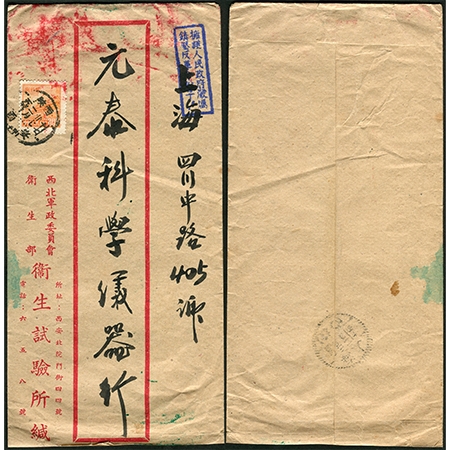 擁護人民政府
上海 四川中路405号
元泰科學儀器行
西北軍政委員會
衛生部
衛生試驗所緘
所址：西安北院門街四四號
電話：六五八號